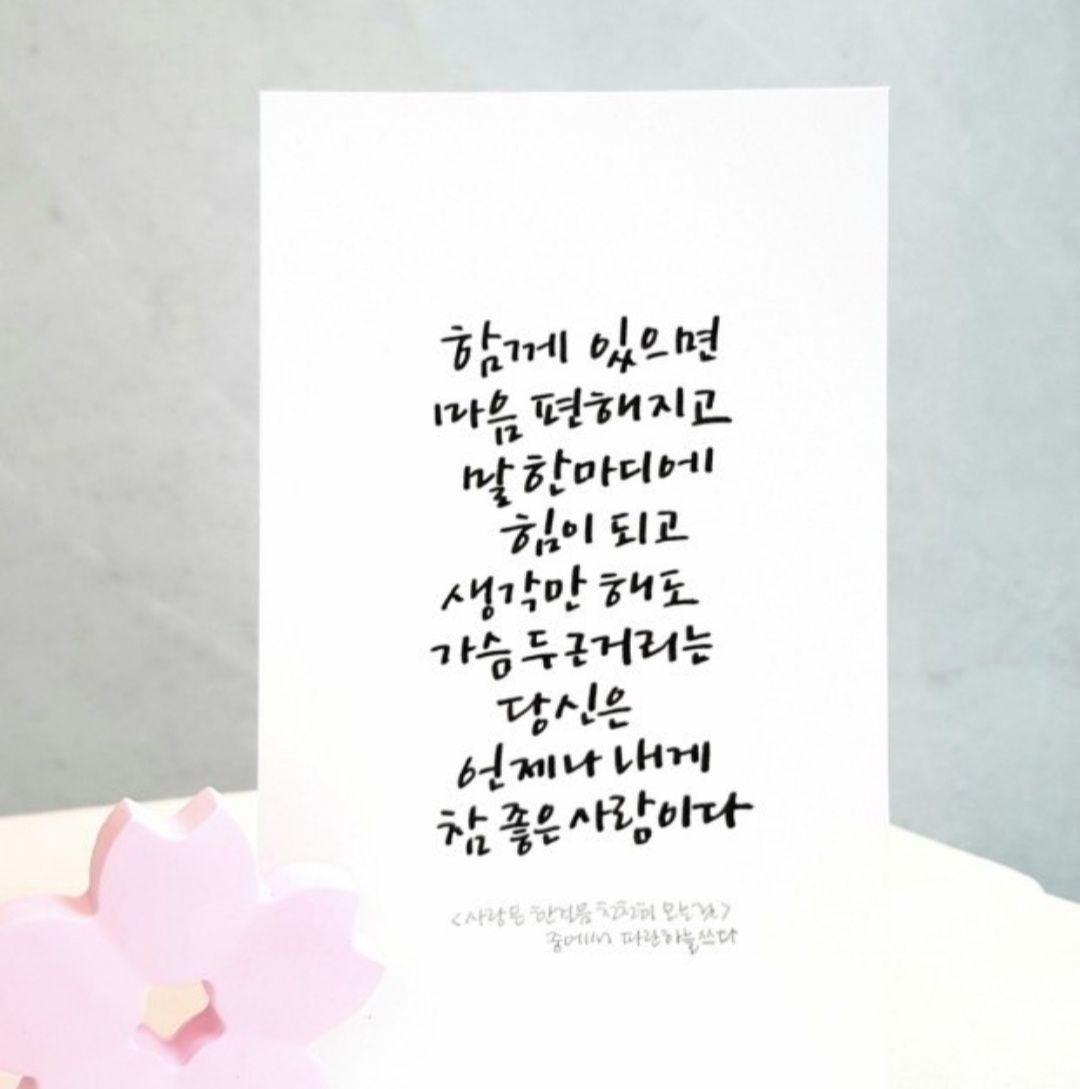 함께 있으면
마음 편해지고
말 한마디에
힘이 되고
생각만 해도
가슴 두근거리는
당신은
언제나 내게
참 좋은 사람이다
<사랑은 한걸음 천천히 오는것>
중에서 파란하늘쓰다